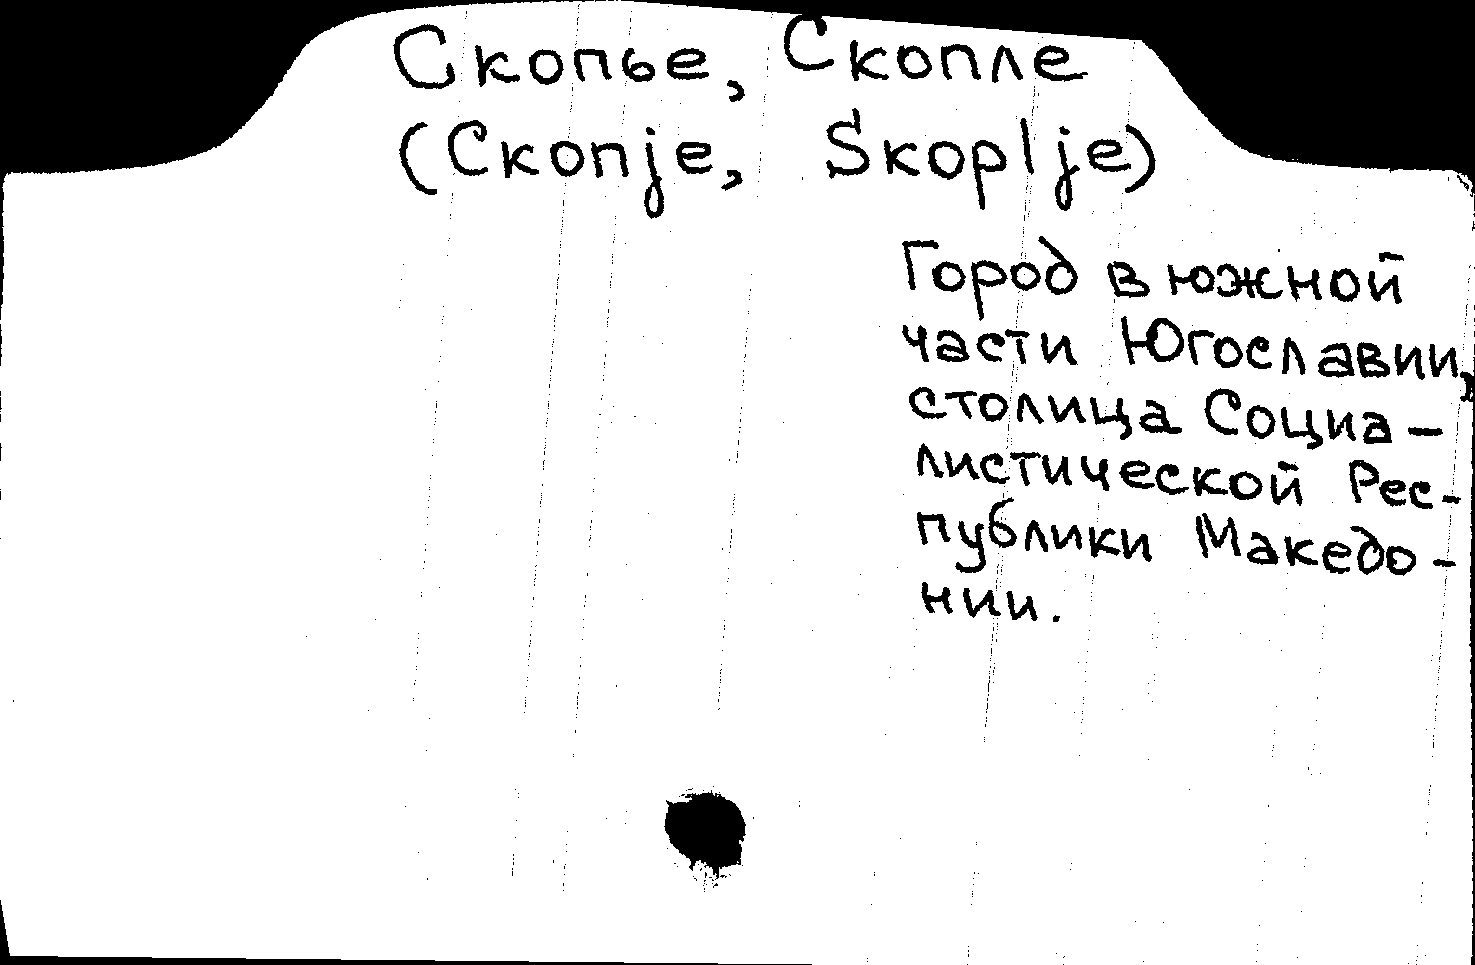 Скопье, Скопле
(Скопjе, Skoplje)
Город в южной
части Югославии,
столица Социа-
листической Рес-
публики Македо-
нии.